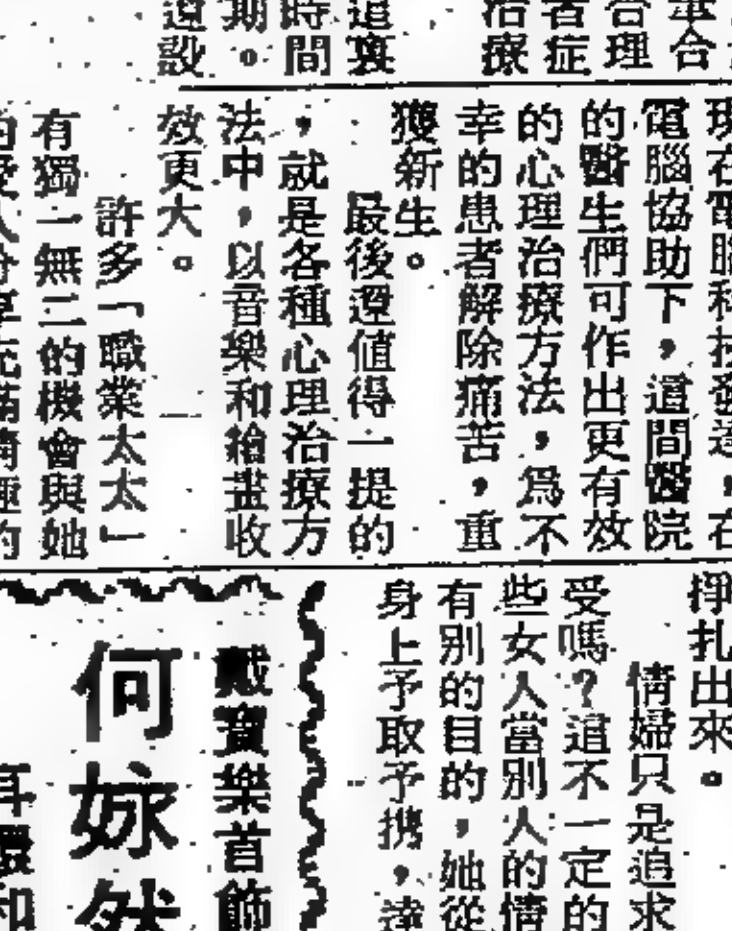 合理
者症
治療
這裏
時間
期。
還設
電腦協助下，這間醫院
的醫生們可作出更有效
的心理治療方法，爲不
幸的患者解除痛苦，重
獲新生。
最後還值得一提的
，就是各種心理治療方
法中，以音樂和繪畫收
效更大。
許多「職業太太」
有獨一無二的機會與她
掙扎出來。
情婦只是追求
受嗎？這不一定的
些女人當別人的情
有別的目的，她從
身上予取予携，達
戴寶樂首飾
何㛄然
耳環和